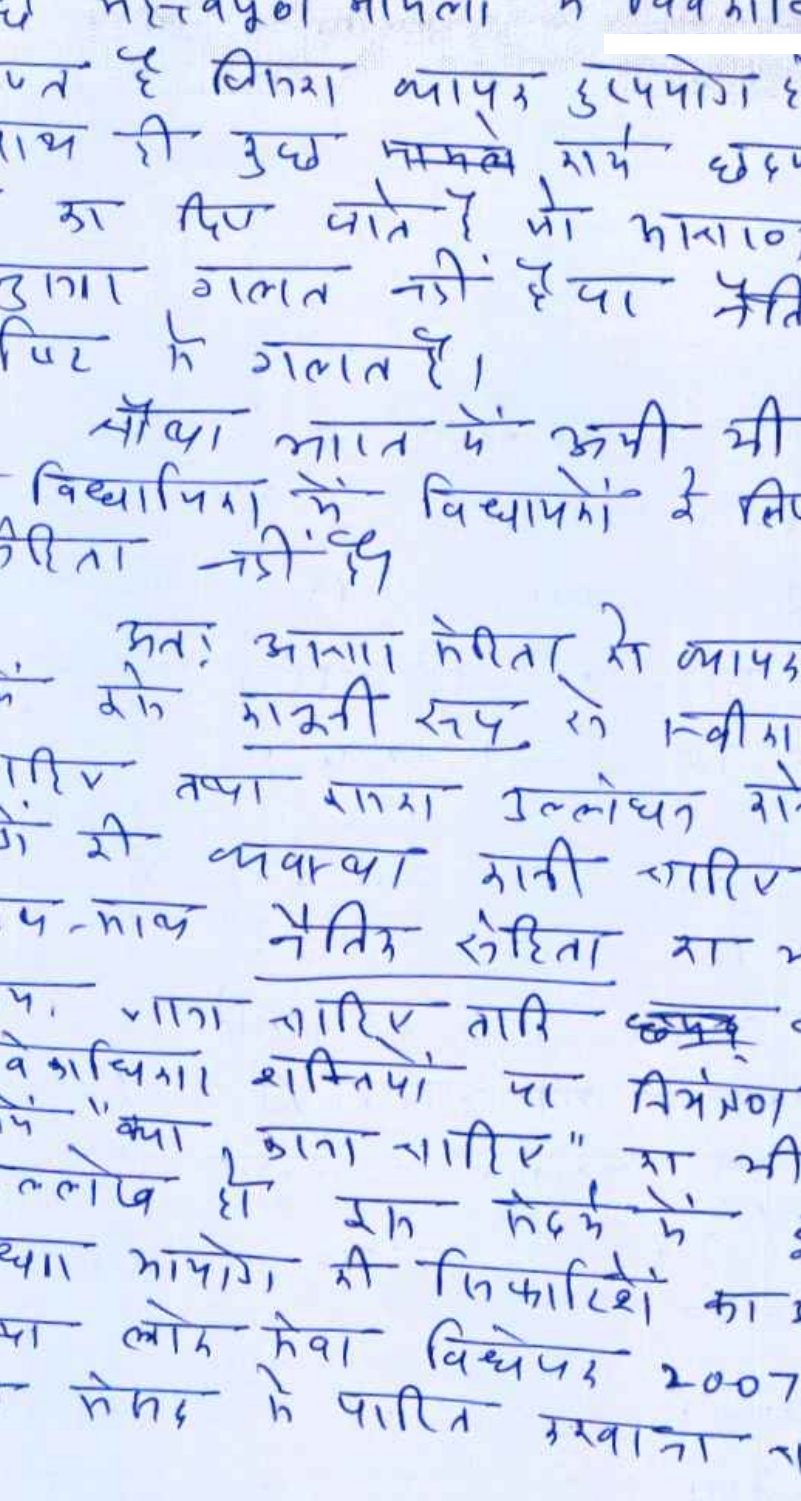 महत्त्वपूर्ण मामलों में
है जिसका व्यापक दुरुपयोग
साथ ही कुछ कार्य छद्म
का दिए जाते हैं जो
गलत नहीं है या नैति
से गलत है।
चौथा भारत में अभी भी
विधायिका में विधायकों के लिए
संहिता नहीं है
अतः आचार संहिता को व्यापक
इसे कानूनी रूप से स्वीका
चाहिए तथा इसका उल्लंघन
की व्यवस्था होनी चाहिए
साथ-साथ नैतिक संहिता का
जाना चाहिए ताकि
वेकाधिकार शक्तियों पर नियंत्रण
में "क्या करना चाहिए" का भी
उल्लेख हो इस संदर्भ में
आयोग की सिफारिशों का
लोक सेवा विधेयक 2007
संसद से पारित करवाना